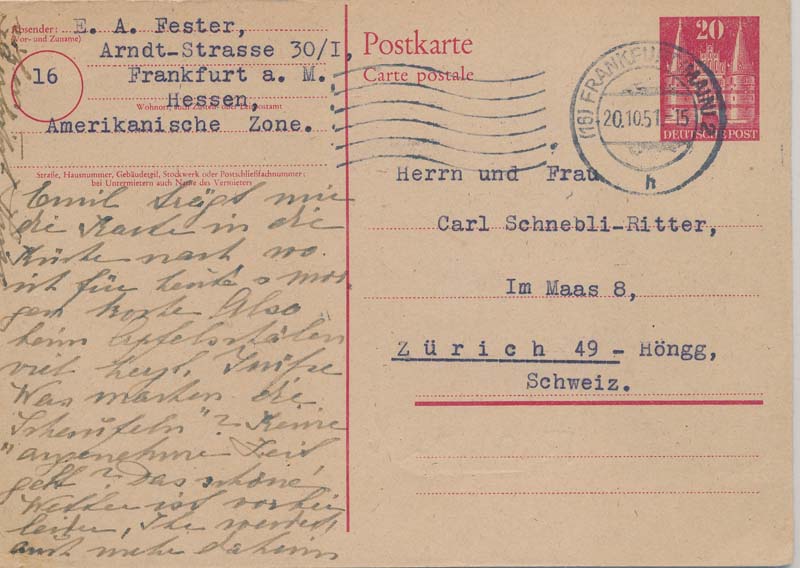 Absender:
(Vor- und Zuname)
E. A. Fester,
Arndt-Strasse 30/I,
16
Frankfurt a. M.
Hessen,
Wohnort, auch Zustell- oder Leitpostamt
Amerikanische Zone.
Straße, Hausnummer, Gebäudeteil, Stockwerk oder Postschließfachnummer:
bei Untermietern auch Name des Vermieters
Emil trägt mir
die Karte in die
Küche nach wo
ich für heute & mor-
gen koche Also
beim Apfelschälen
viel herzl. Grüße
Was machen die
"? Keine
"angenehme Zeit
gell? Das schöne
Wetter ist vorbei
leider, Ihr werdet
auch mehr daheim
Postkarte
Carte postale
20
DEUTSCHE POST
(16) FRANKFURT (MAIN) 2
20.10.51.-15
h
Herrn und Frau
Carl Schnebli-Ritter,
Im Maas 8,
Zürich 49 - Höngg,
Schweiz.